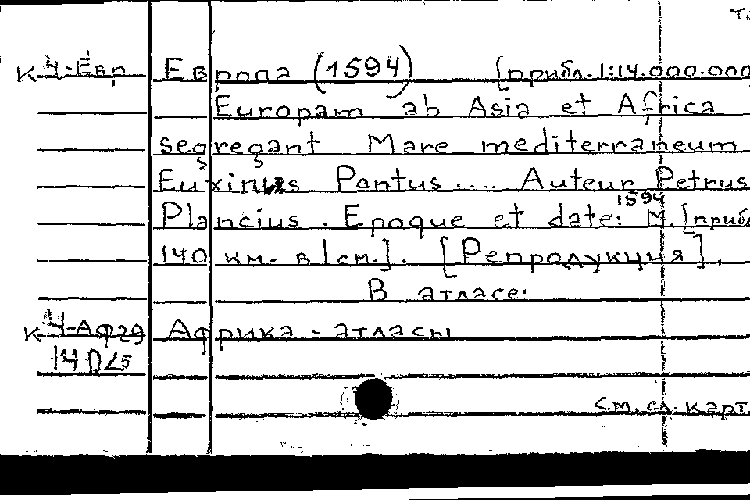 К 4-Евр Европа (1594) [прибл. 1:14.000.000
Europam ab Asia et Africa
segregant Mare mediterraneum
Euxinus Pontus .... Auteur Petrus
Plancius. Epoque et date: 1594 М. [прибл
140 км. в 1 см.]. [Репродукция].
В атласе:
К 4-Афр Африка - атласы
см. сл. карт